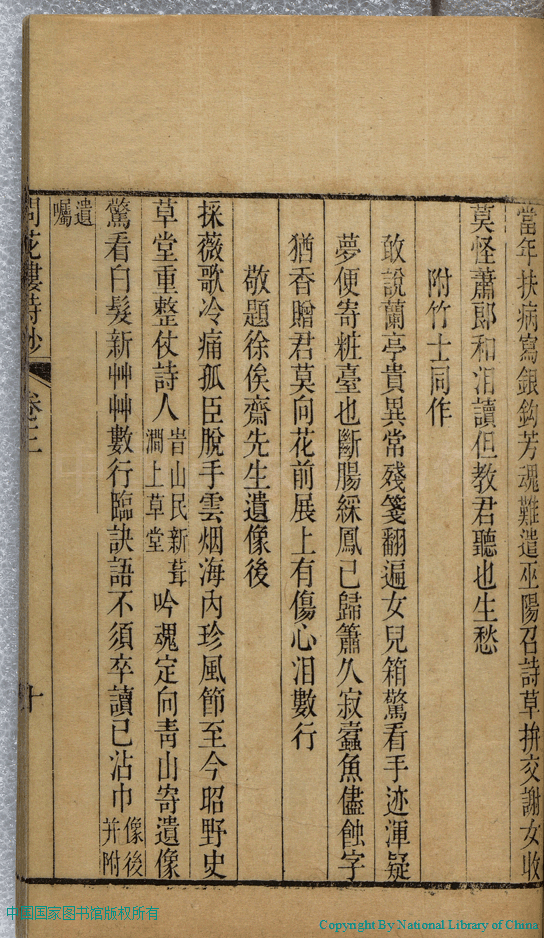 當年扶病寫銀鈎芳魂難遣巫陽召詩草拚交謝女收
莫怪蕭郎和泪讀但教君聽也生愁
附竹士同作
敢說蘭亭貴異常殘箋翻遍女兒箱驚看手迹渾疑
夢便寄粧臺也斷腸綵鳳已歸簫久寂蠹魚儘蝕字
猶香贈君莫向花前展上有傷心泪數行
敬題徐俟齋先生遺像後
採薇歌冷痛孤臣脫手雲烟海內珍風節至今昭野史
草堂重整仗詩人旹山民新葺澗上草堂吟魂定向靑山寄遺像
驚看白髮新艸艸數行臨訣語不須卒讀已沾巾像後并附
遺囑
問花樓詩鈔 卷三 十
中国国家图书馆版权所有
Copyright By National Library of China